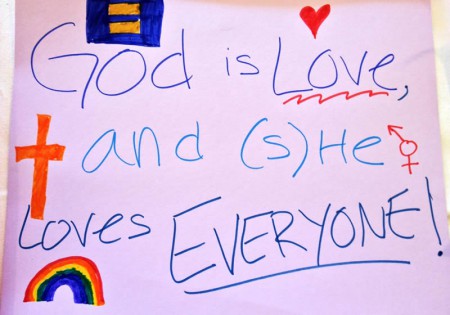 God is Love,
and (s)He
Loves EVERYONE!